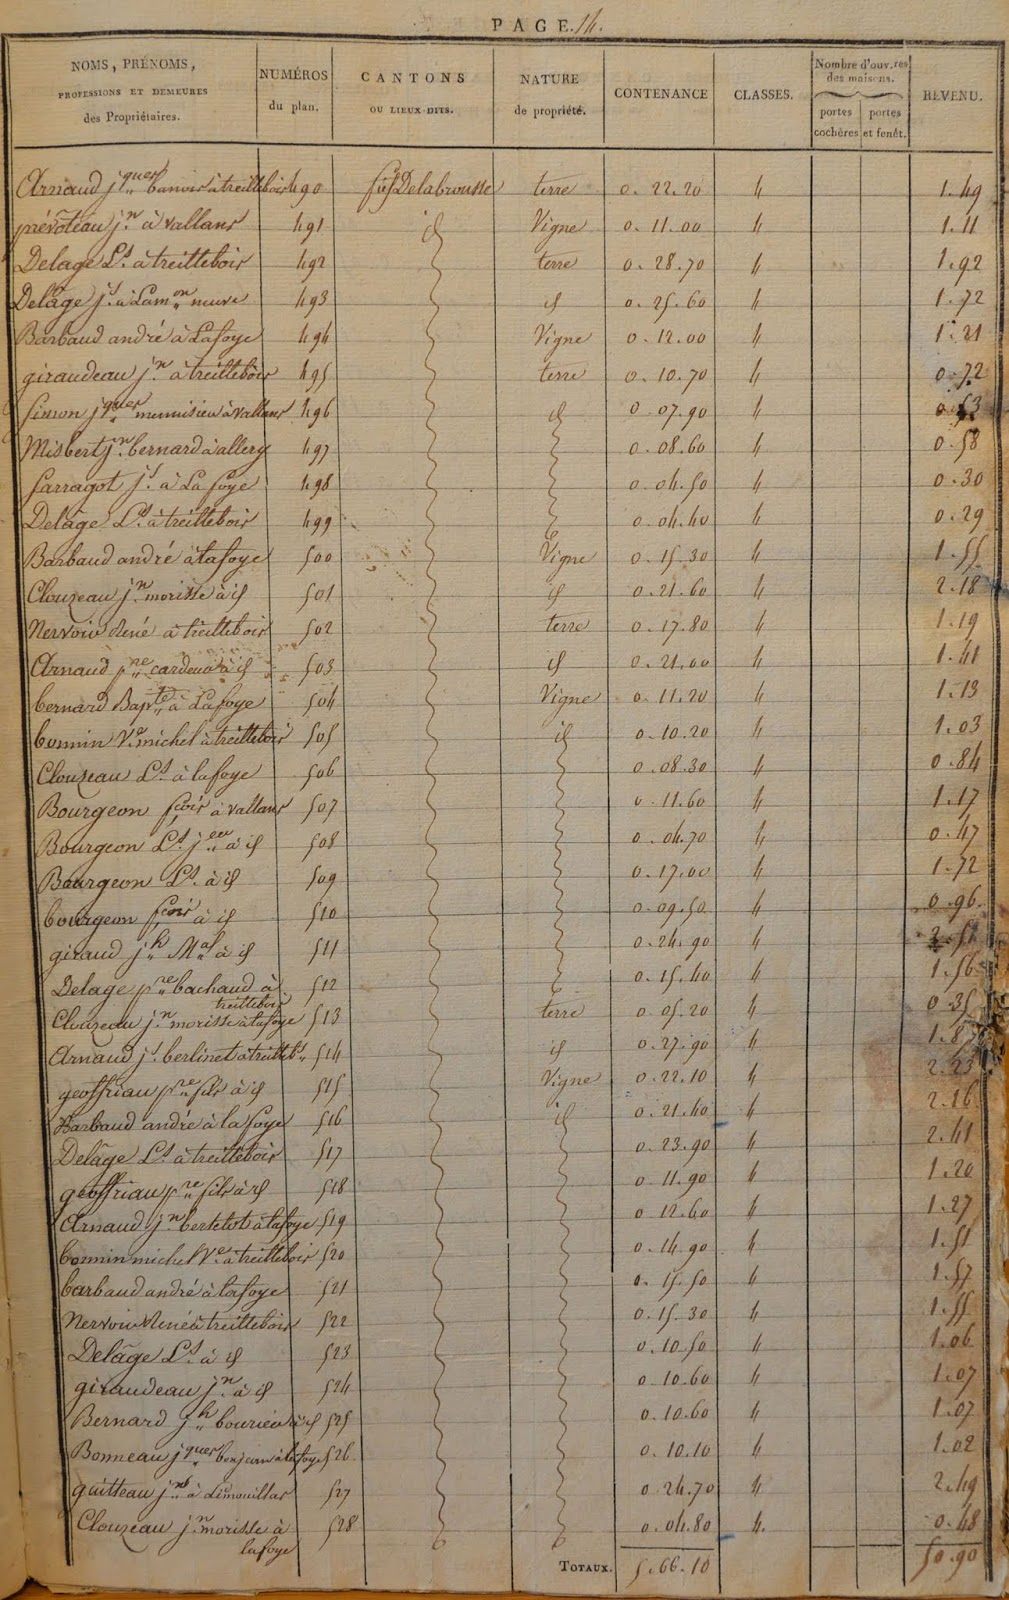 PAGE. 14.
NOMS, PRÉNOMS, PROFESSIONS ET DEMEURES des Propriétaires. NUMÉROS du plan. CANTONS OU LIEUX-DITS. NATURE de propriété. CONTENANCE CLASSES. Nombre d'ouv.res des maisons. portes cochères portes et fenêt. REVENU.
Arnaud jques banvir à treillebois 490 fief Delabrousse terre 0.22.20 4 1.49
prévoteau jn à vallans 491 id Vigne 0.11.00 4 1.11
Delage Ls à treillebois 492 terre 0.28.70 4 1.92
Delâge js à Lamon neuve 493 id 0.25.60 4 1.72
Barbaud andré à Lafoye 494 Vigne 0.12.00 4 1.21
giraudeau jn à treillebois 495 terre 0.10.70 4 0.72
Simon jques menuisieu à vallans 496 id 0.07.90 4 0.53
Misbert jn bernard à allery 497 0.08.60 4 0.58
farragot js à La foye 498 0.04.50 4 0.30
Delâge Ls à treillebois 499 0.04.40 4 0.29
Barbaud andré à lafoye 500 Vigne 0.15.30 4 1.55
Clouzeau jn morisse à id 501 id 0.21.60 4 2.18
Nervoir René à treillebois 502 terre 0.17.80 4 1.19
Arnaud pre à id 503 id 0.21.00 4 1.41
bernard Bapte à Lafoye 504 Vigne 0.11.20 4 1.13
bonnin Ve michel à treillebois 505 id 0.10.20 4 1.03
Clouzeau Ls à lafoye 506 0.08.30 4 0.84
Bourgeon fcois à vallans 507 0.11.60 4 1.17
Bourgeon Ls jeu à id 508 0.04.70 4 0.47
Bourgeon Ls à id 509 0.17.00 4 1.72
bourgeon fcois à id 510 0.09.50 4 0.96
giraud jh Mal à id 511 0.24.90 4
Delage pre bachaud à treillebois 512 0.15.40 4 1.56
Clouzeau jn morisse à lafoye 513 terre 0.05.20 4 0.35
Arnaud js berlinet à treilleb. 514 id 0.27.90 4 1.87
geoffriau pre fils à id 515 Vigne 0.22.10 4 2.23
Barbaud andré à la foye 516 id 0.21.40 4 2.16
Delâge Ls à treillebois 517 0.23.90 4 2.41
geoffriau pre fils à id 518 0.11.90 4 1.20
Arnaud jn bertelot à lafoye 519 0.12.60 4 1.27
bonnin michel Ve à treillebois 520 0.14.90 4 1.51
barbaud andré à lafoye 521 0.15.50 4 1.57
Nervoir René à treillebois 522 0.15.30 4 1.55
Delâge Ls à id 523 0.10.50 4 1.06
giraudeau jn à id 524 0.10.60 4 1.07
Bernard jh à id 525 0.10.60 4 1.07
Bonneau jques bonjean à lafoye 526 0.10.10 4 1.02
guitteau à Limouillas 527 0.24.70 4 2.49
Clouzeau jn morisse à lafoye 528 0.04.80 4 0.48
TOTAUX. 5.66.10 50.90